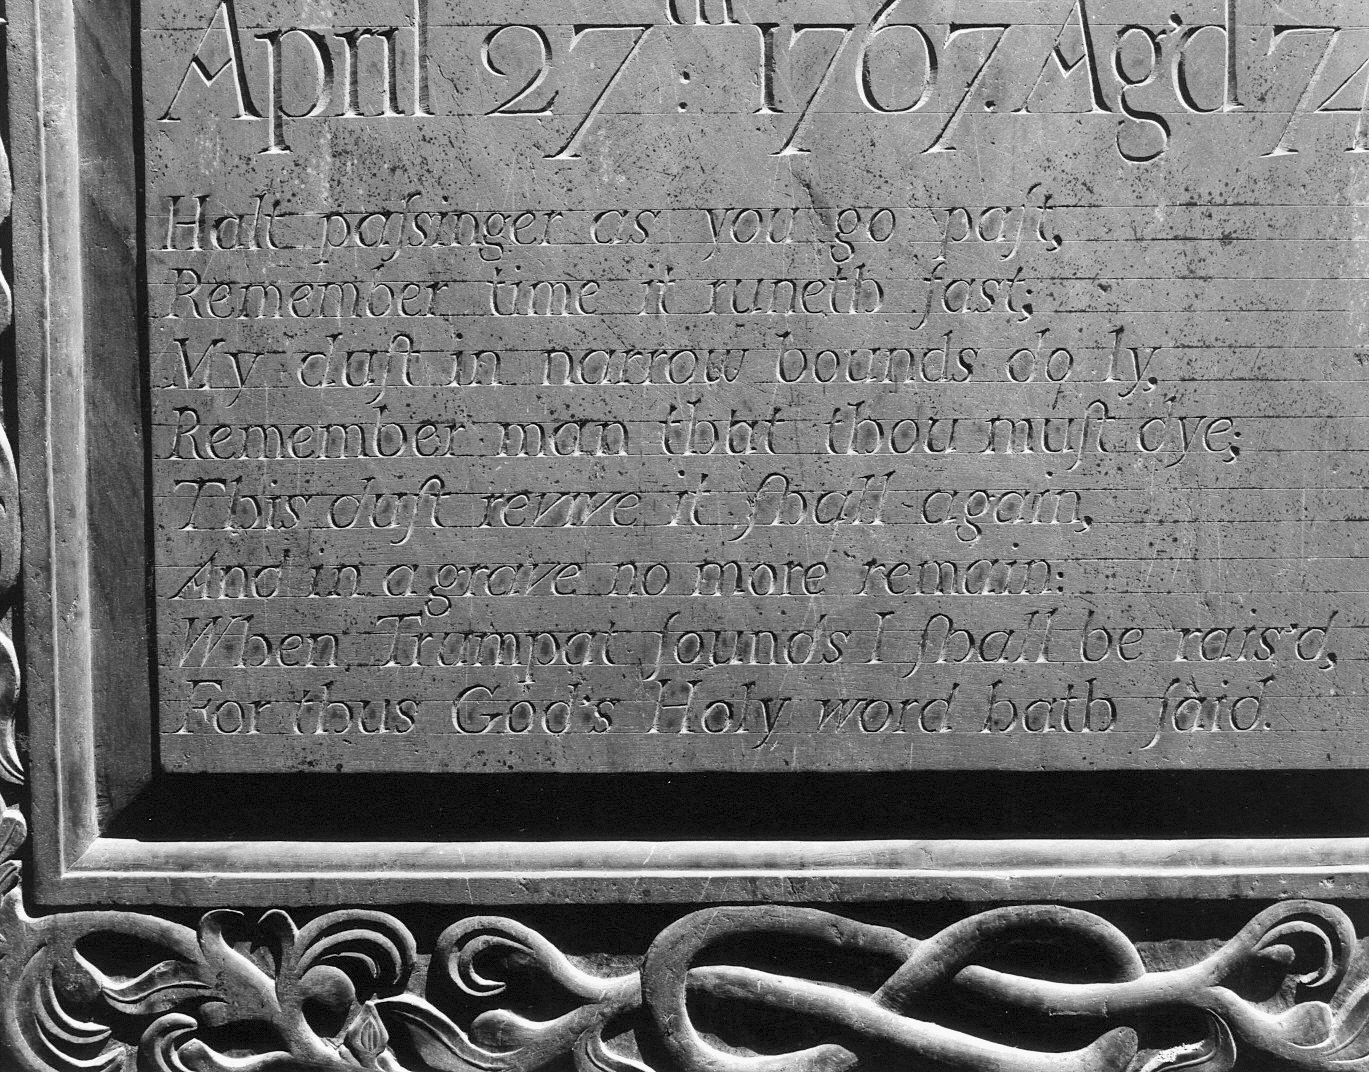 April 27th: 1767. Ag'd 74
Halt paſsinger as you go paſt,
Remember time it runeth fast;
My duſt in narrow bounds do ly,
Remember man that thou muſt dye;
This duſt revive it ſhall again,
And in a grave no more remain:
When Trumpat ſounds I ſhall be rais'd,
For thus God's Holy word hath ſaid.